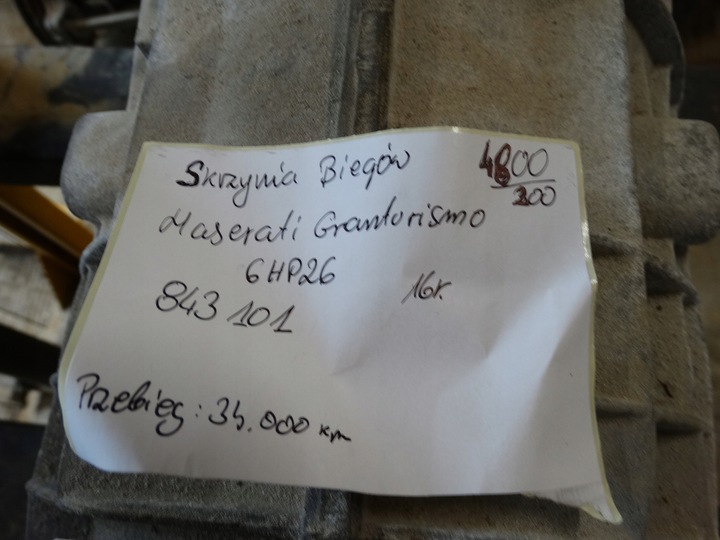 Skrzynia Biegów 4800
200
Maserati Granturismo
6HP26 16r.
843 101
Przebieg: 34.000 km